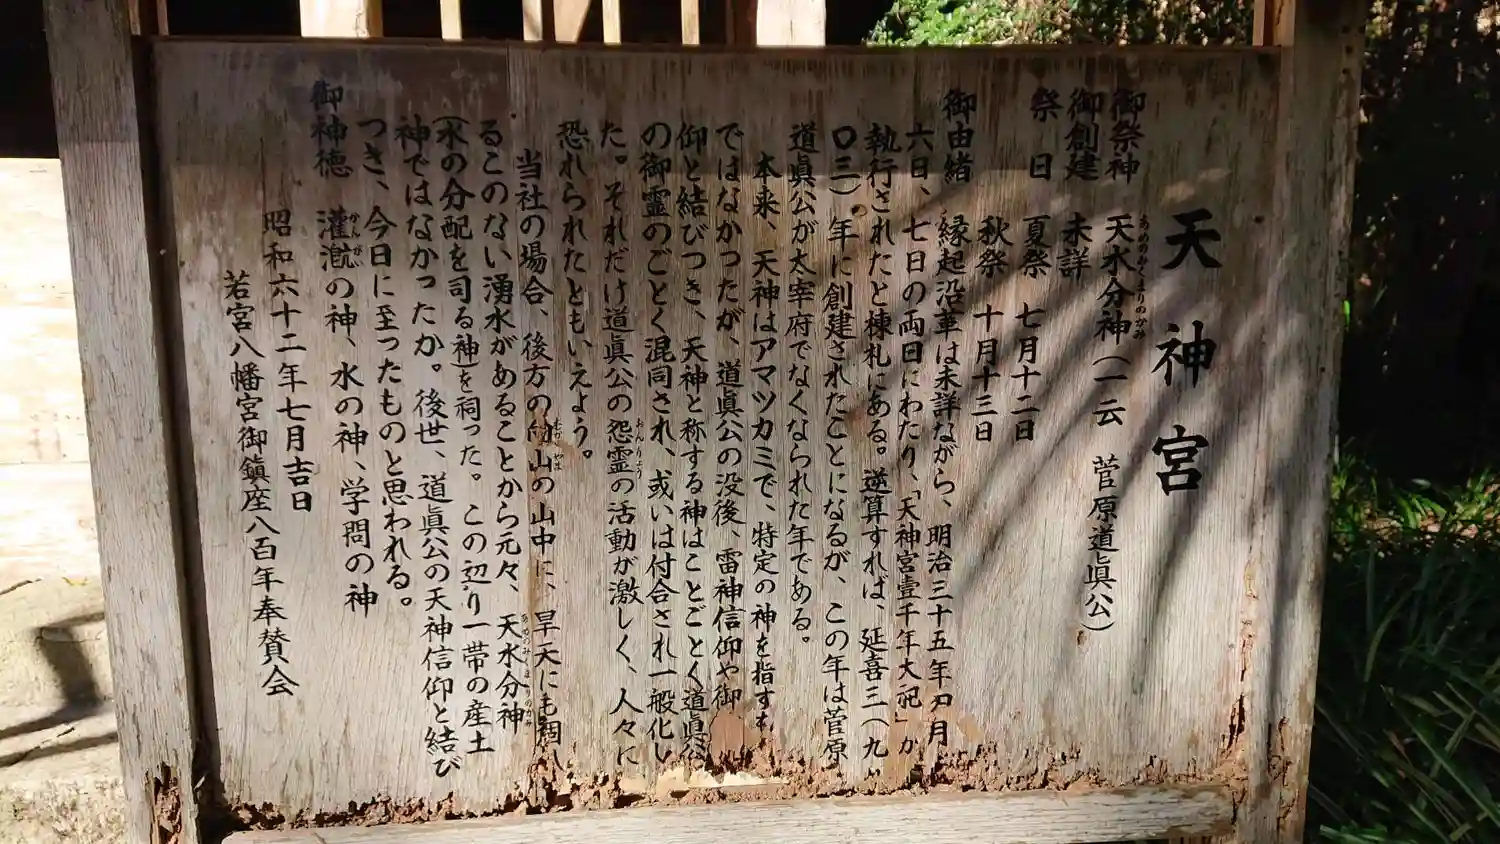 天神宮
御祭神 天水分神(一云 菅原道眞公)
あめのみくまりのかみ
御創建 未詳
祭日 夏祭 七月十二日
秋祭 十月十三日
御由緒 縁起沿革は未詳ながら、明治三十五年 月
六日、七日の両日にわたり、「天神宮壹千年大祀」が
執行されたと棟札にある。逆算すれば、延喜三(九
〇三)年に創建されたことになるが、この年は菅原
道眞公が太宰府でなくなられた年である。
本来、天神はアマツカミで、特定の神を指すも
ではなかったが、道眞公の没後、雷神信仰や御
仰と結びつき、天神と称する神はことごとく道眞公
の御霊のごとく混同され、或いは付合され一般化し
た。それだけ道眞公の怨霊の活動が激しく、人々に
おんりょう
恐れられたともいえよう。
当社の場合、後方の 山の山中に、旱天にも涸れ
るこのない湧水があることから元々、天水分神
あめのみくまりのかみ
(水の分配を司る神)を祠った。この辺り一帯の産土
神ではなかったか。後世、道眞公の天神信仰と結び
つき、今日に至ったものと思われる。
御神徳 灌漑の神、水の神、学問の神
かんがい
昭和六十二年七月吉日
若宮八幡宮御鎮座八百年奉賛会